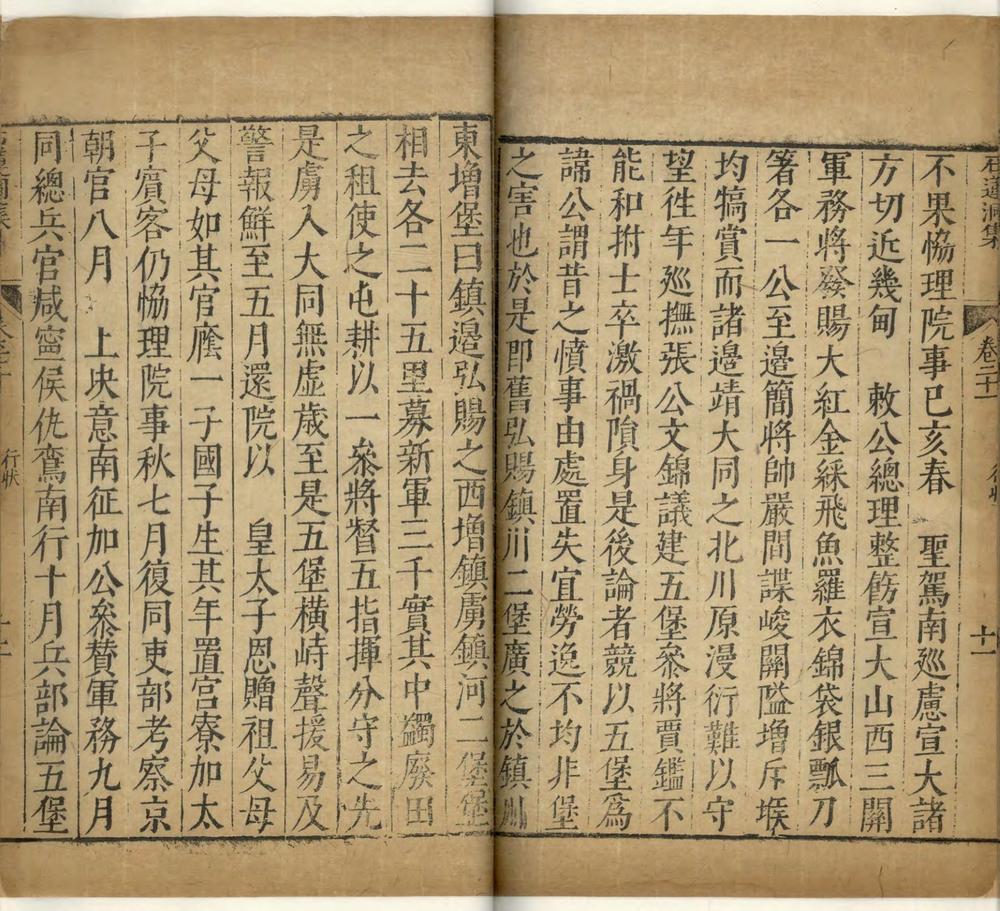 石蓮洞集
卷二十
行狀
十一
不果恊理院事已亥春　聖駕南廵慮宣大諸
方切近幾甸　敕公總理整飭宣大山西三關
軍務將發賜大紅金綵飛魚羅衣錦袋銀瓢刀
箸各一公至邉簡將帥嚴間諜峻關隘增斥堠
均犒賞而諸邉靖大同之北川原漫衍難以守
望徃年廵撫張公文錦議建五堡叅將賈鑑不
能和拊士卒激禍隕身是後論者競以五堡爲
諱公謂昔之憤事由處置失宜勞逸不均非堡
之害也於是即舊弘賜鎮川二堡廣之於鎮川
東增堡曰鎮邉弘賜之西增鎮虜鎮河二堡堡
相去各二十五里募新軍三千實其中蠲廢田
之租使之屯耕以一叅將督五指揮分守之先
是虜入大同無虚歲至是五堡横峙聲援易及
警報鮮至五月還院以　皇太子恩贈祖父母
父母如其官廕一子國子生其年置宮寮加太
子賔客仍恊理院事秋七月復同吏部考察京
朝官八月　上决意南征加公叅賛軍務九月
同總兵官咸寧侯仇鸞南行十月兵部論五堡
行狀